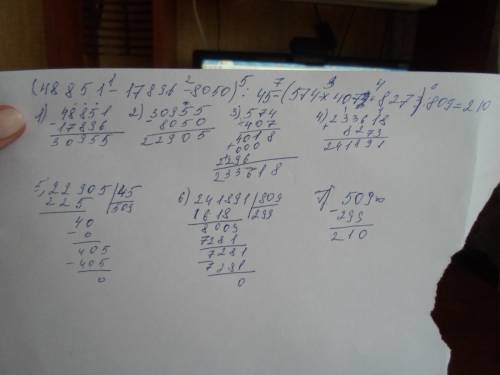 1 2 5 7 3 4 6
(48851 - 17896 - 8050) : 45 - (574 × 407 + 8273) : 809 = 210
1) 48851 2) 30955 3) 574 4) 233618
17896 - 8050 407 + 8273
30955 22905 4018 241891
+ 000
2296
233618
5) 22905 | 45 6) 241891 | 809 7) 509
225 | 509 1618 | 299 - 299
40 8009 210
- 0 7281
405 7281
- 405 7281
0 0